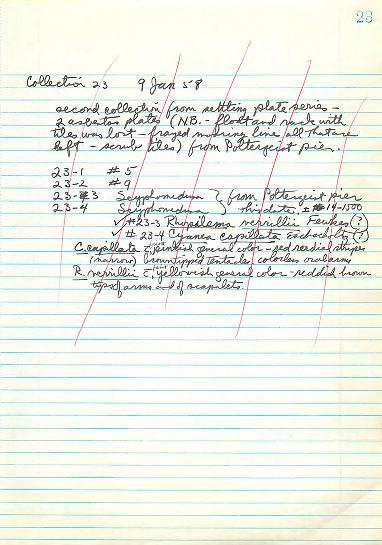 23
Collection 23 9 Jan 58
second collection from settling plate series -
2 asbestos plates (NB. - float and rack with
tiles was lost - frayed mooring line all that are
left - scrub tiles) from Poltergeist pier.
23-1 #5
23-2 #9
23-3 Scyphomedusa } from Poltergeist pier
23-4 Scyphomedusa } this date, ± 1400-1500
✓ #23-3 Rhopilema verrillii Fewkes (?)
✓ #23-4 Cyanea capillata Eschscholtz (?)
C. capillata c̄ pinkish general color - red radial stripes
(narrow) brown tipped tentacles, colorless oral arms
R. verrillii c̄ yellowish general color - reddish brown
tips of arms and of scapulets.